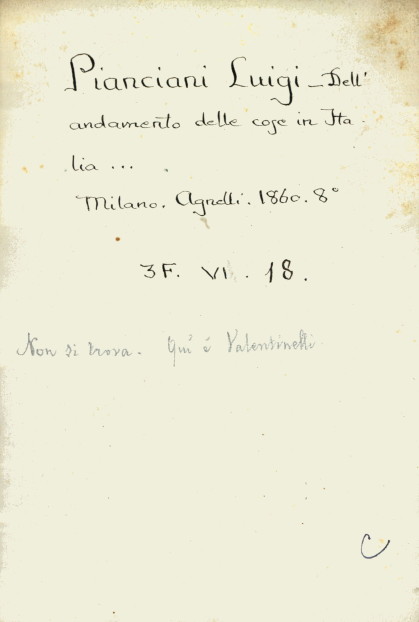 Pianciani Luigi - Dell'
andamento delle cose in Ita-
lia ...
Milano. Agnelli. 1860. 8°
3F. VI. 18.
Non si trova. Qui è Valentinelli
C